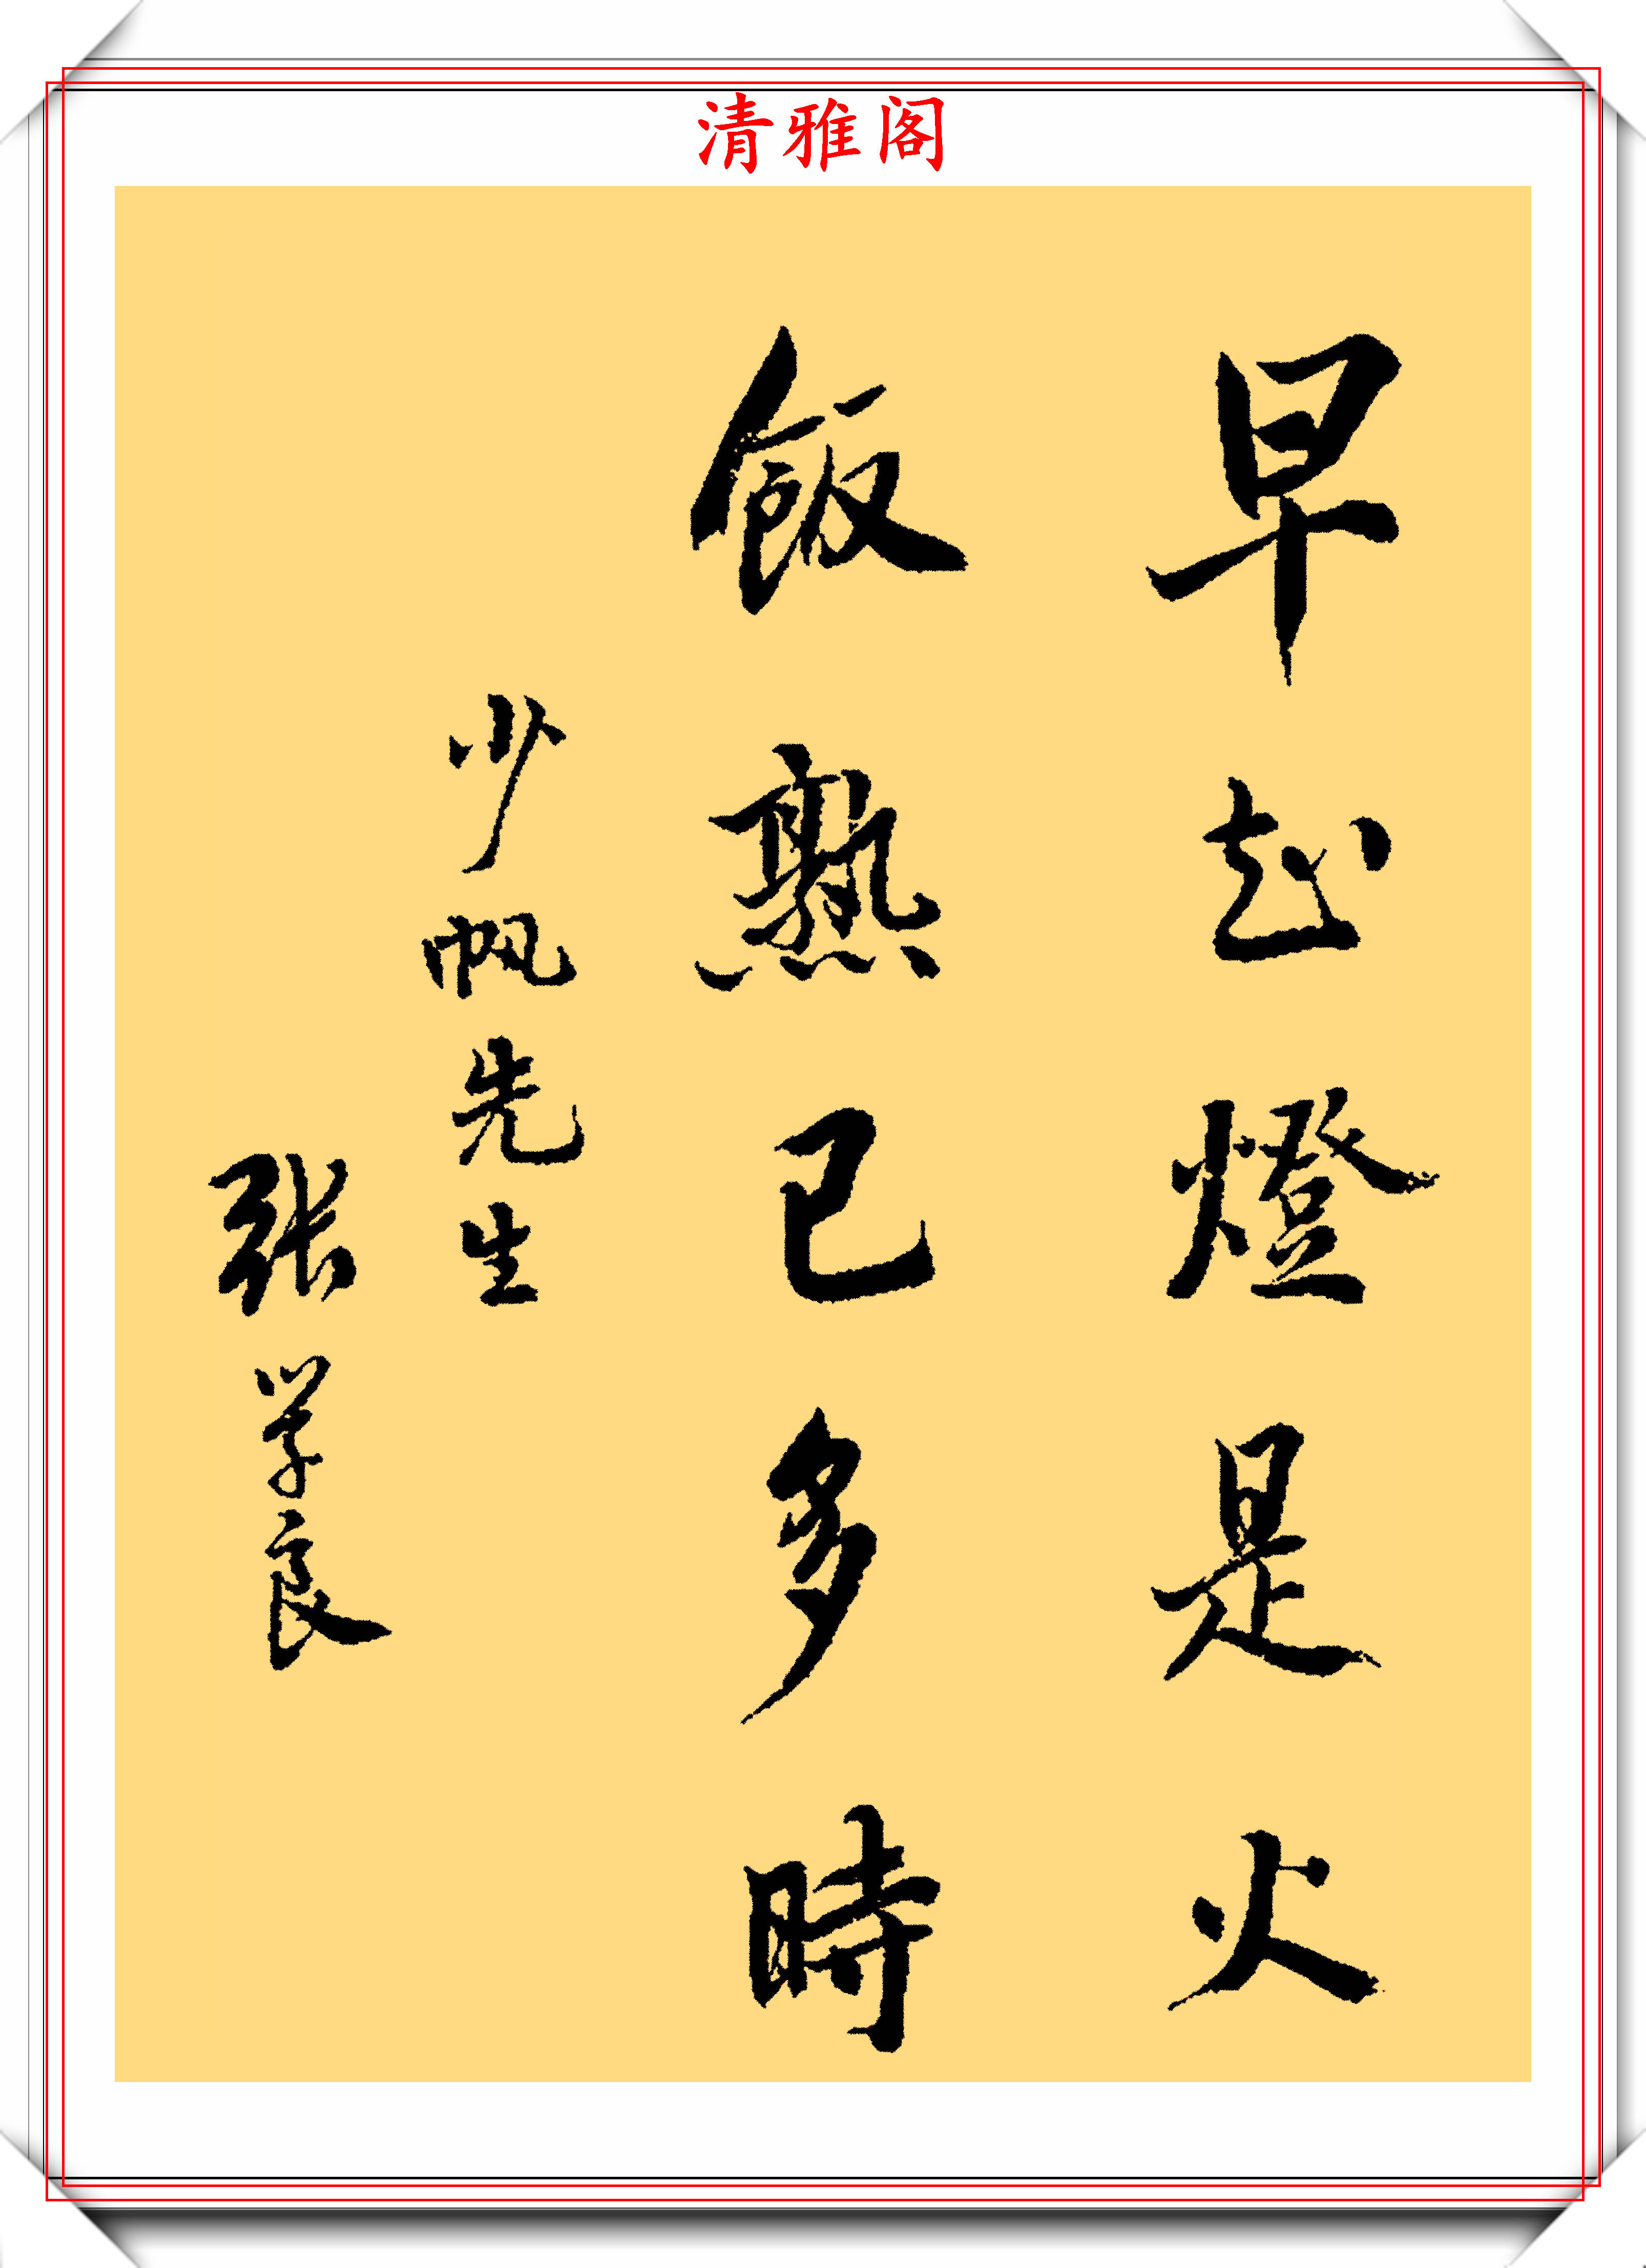 清雅阁
早知燈是火
飯熟已多時
少帆先生
张学良